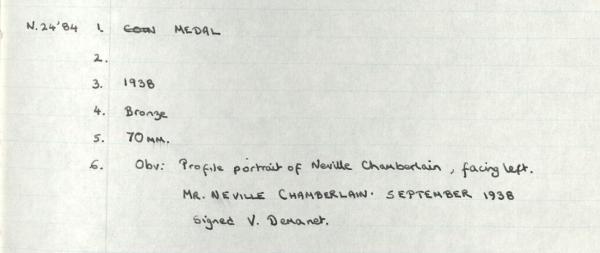 N.24'84 1. COIN MEDAL
2.
3. 1938
4. Bronze
5. 70 MM.
6. Obv: Profile portrait of Neville Chamberlain, facing left.
MR. NEVILLE CHAMBERLAIN. SEPTEMBER 1938
Signed V. Demanet.